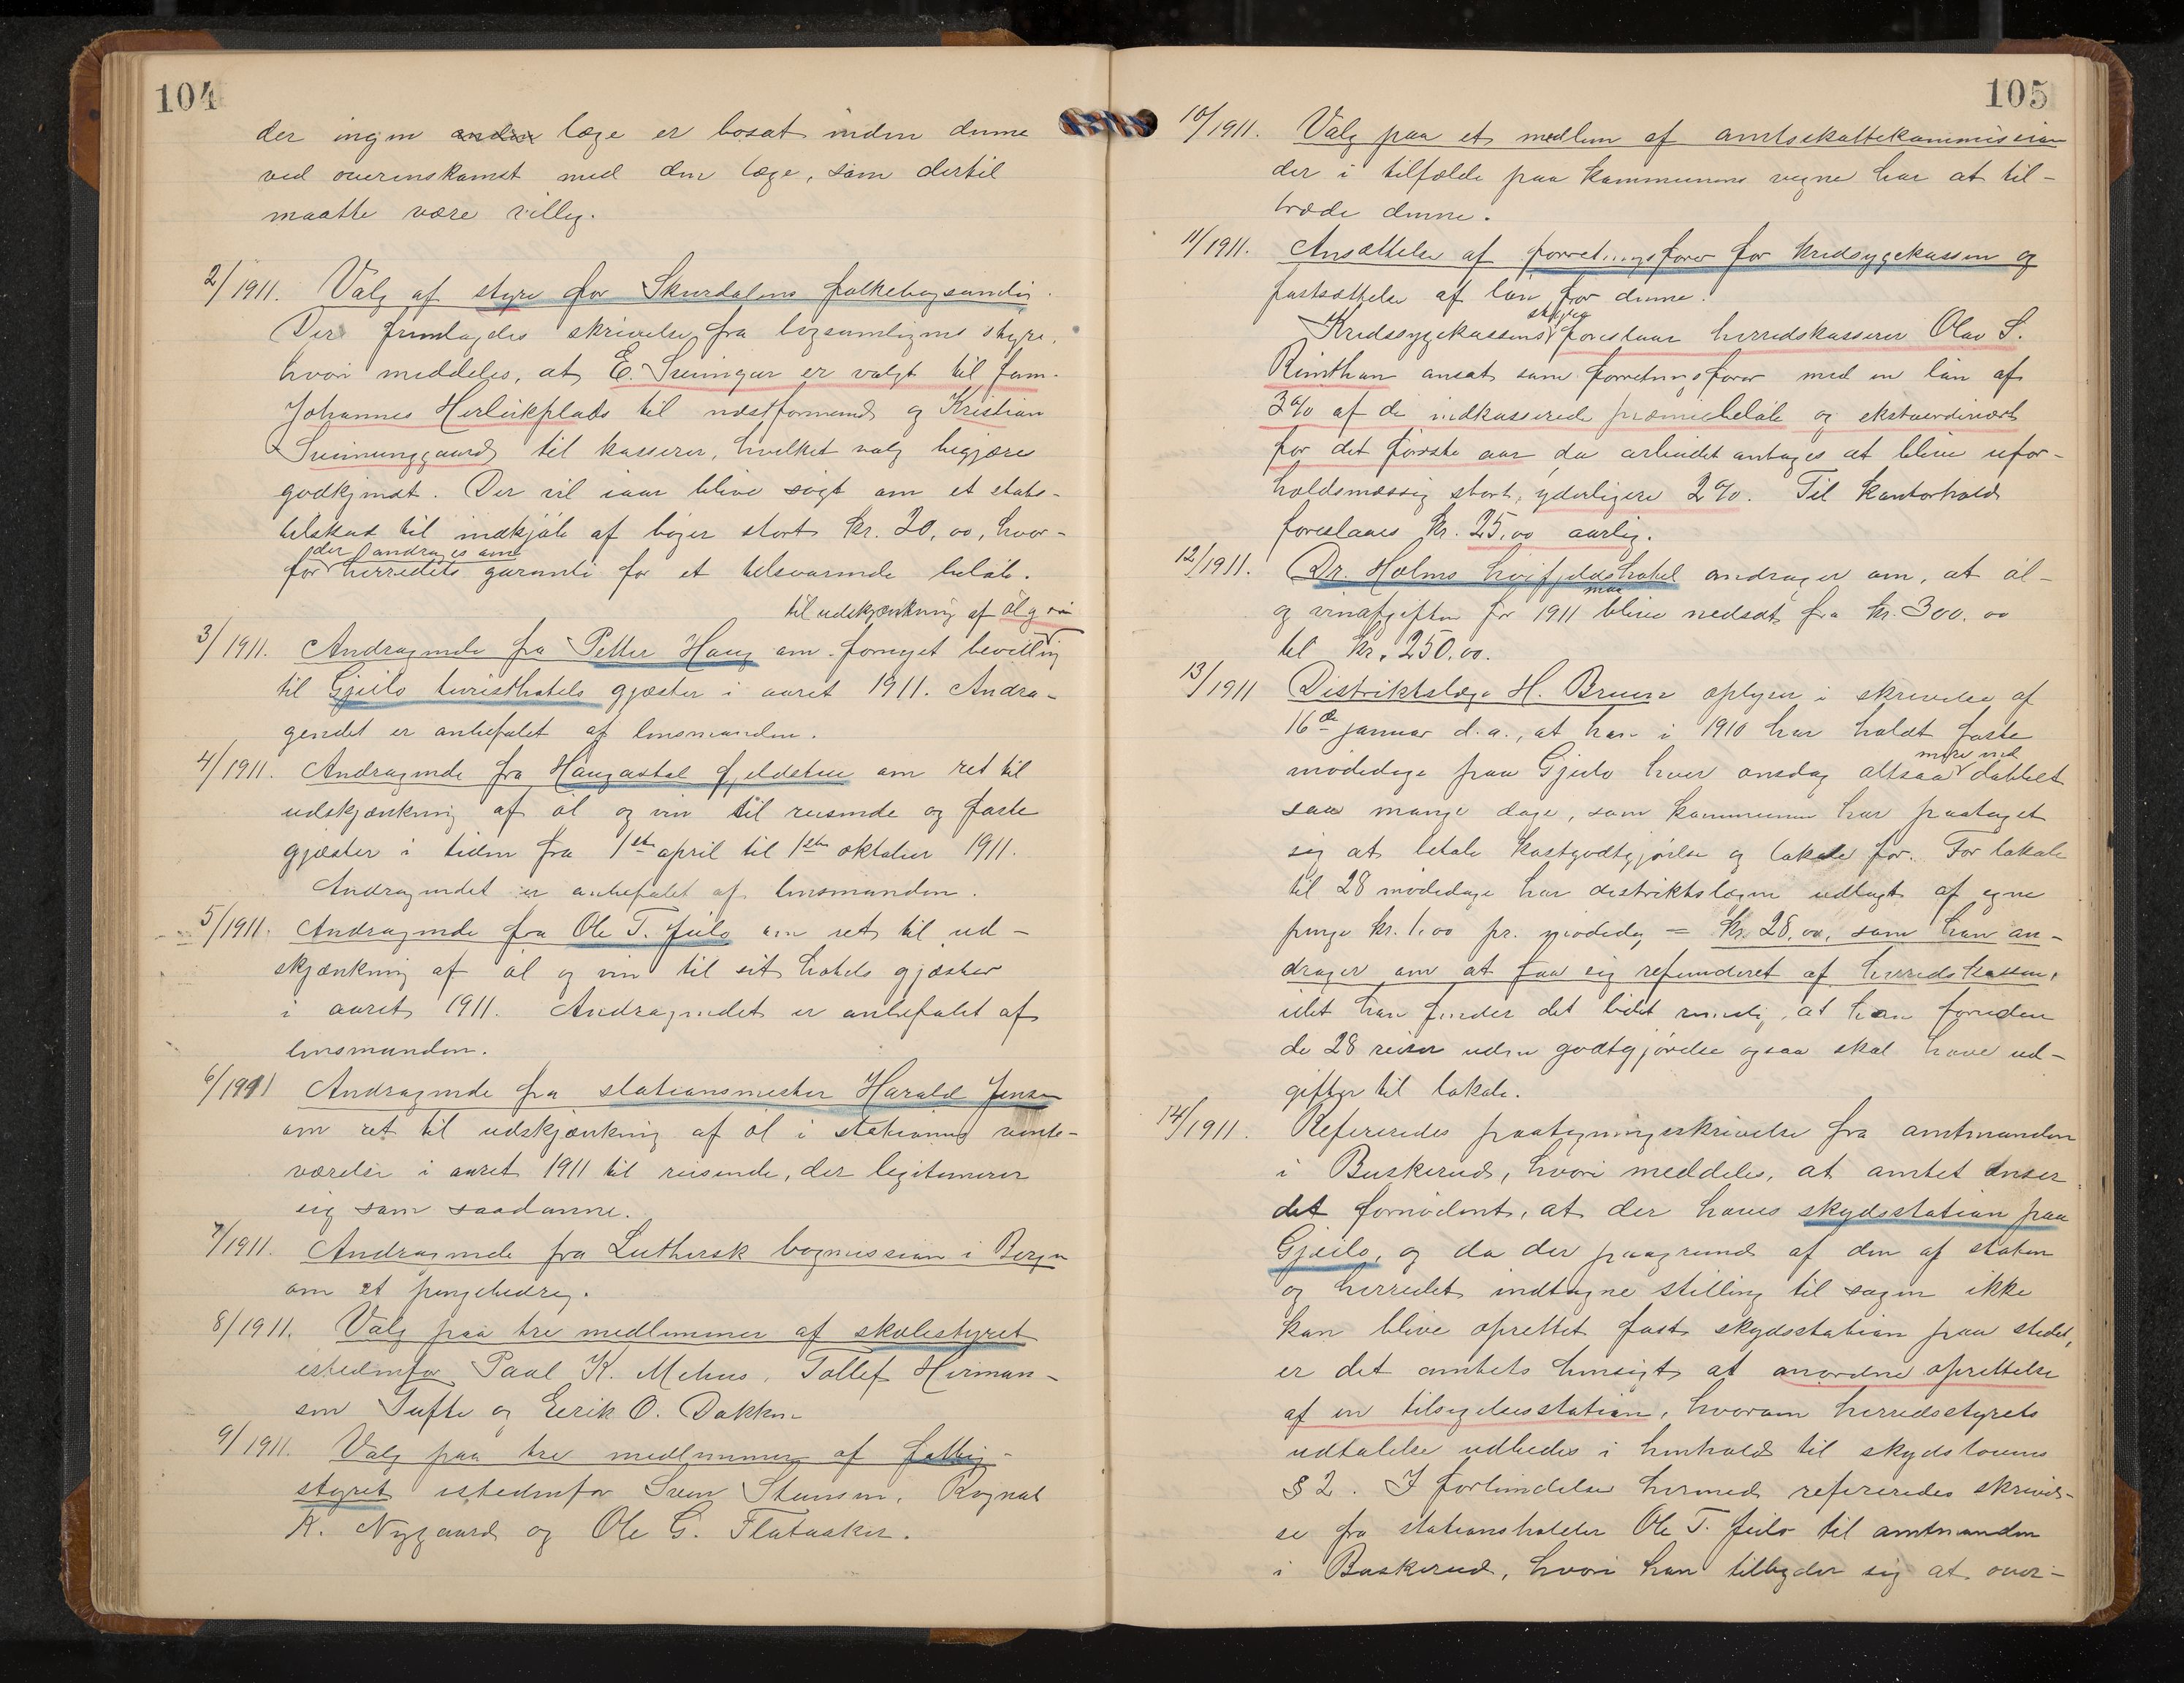 104
der ingen anden læge er bosat inden denne
ved overenskomst med den læge, som dertil
maatte være villig.
2/1911. Valg af styre for Skurdalens folkebogsamlig.
Der fremlagdes skrivelse fra bogsamligens styre,
hvori meddeles, at E. Sveingar er valgt til fom.
Johannes Herleikplads til næstformand og Kristian
Sveinunggaard til kasserer, hvilket valg begjæres
godkjendt. Der vil iaar blive søgt om et stats-
tilskud til indkjøb af bøger stort kr. 20,00, hvor-
der andrages om
for herredets garanti for et tilsvarende beløb.
til udskjænkning af øl og vin
3/1911. Andragende fra Petter Haug om fornyet bevilling
til Gjeilo turisthotels gjæster i aaret 1911. Andra-
gendet er anbefalet af lensmanden.
4/1911. Andragende fra Haugastøl fjeldstue om ret til
udskjænkning af øl og vin til reisende og faste
gjæster i tiden fra 1ste april til 1ste oktober 1911.
Andragendet er anbefalet af lensmanden.
5/1911. Andragende fra Ole T. Jeilo om ret til ud-
skjænkning af øl og vin til sit hotels gjæster
i aaret 1911. Andragendet er anbefalet af
lensmanden.
6/1911 Andragende fra stationsmester Harald Jensen
om ret til udskjænkning af øl i stationens vente-
værelse i aaret 1911 til reisende, der legitimerer
sig som saadanne.
7/1911. Andragende fra Luthersk bogmission i Bergen
om et pengebidrag.
8/1911. Valg paa tre medlemmer af skolestyret
istedenfor Paul K. Mehus, Tollef Herman-
sen Tufte og Eerik O. Dokken
9/1911. Valg paa tre medlemmer af fattig-
styret istedenfor Sven Stensen, Ragnal
K. Nygaard og Ole G. Flataaker.
105
10/1911. Valg paa et medlem af amtsskattekommission
der i tilfælde paa kommunens vegne har at til-
træde denne.
11/1911. Ansættelse af forretningsfører for kredssygekassen og
fastsættelse af løn for denne.
styre
Kredssygekassens foreslaar herredskasserer Olav S.
Rimthun ansat som forretningsfører med en løn af
3% af de indkasserede præmiebeløb og ekstraordinært
for det første aar da arbeidet antages at blive ufor-
holdsmæssig stort, yderligere 2%. Til kontorhold
foreslaaes kr. 25,00 aarlig.
12/1911. Dr. Holms høifjeldshotel andrager om, at øl-
maa
og vinafgiften for 1911 blive nedsat fra kr. 300.00
til kr. 250.00.
13/1911 Distriktslæge H. Bruun oplyser i skrivelse af
16de januar d.a., at han i 1910 har holdt faste
mere end
mødedage paa Gjeilo hver onsdag altsaa dobbelt
saa mange dage, som kommunen har paataget
sig at betale kostgodtgjørelse og lokale for. For lokale
til 28 mødedage har distriktslægen udlagt af egne
penge kr. 1,00 pr. mødedag = kr. 28,00, som han an-
drager om at faa sig refunderet af herredskassen,
idet han finder det lidet rimelig, at han foruden
de 28 reiser uden godtgjørelse ogsaa skal have ud-
gifter til lokale.
14/1911. Refereredes paategningsskrivelse fra amtmanden
i Buskerud, hvori meddeles, at amtet anser
det fornødent, at der haves skydsstation paa
Gjeilo, og da der paagrund af den af staten
og herredet indtagne stilling til sagen ikke
kan blive oprettet fast skydsstation paa stedet,
er det amtets hensigt at anordne oprettelse
af en tilsigelsesstation, hvorom herredsstyrets
udtalelse udbedes i henhold til skydslovens
§ 2. I forbindelse hermed refereredes skrivel-
se fra stationsholder Ole T. Jeilo til amtmanden
i Buskerud, hvori han tilbyder sig at over-